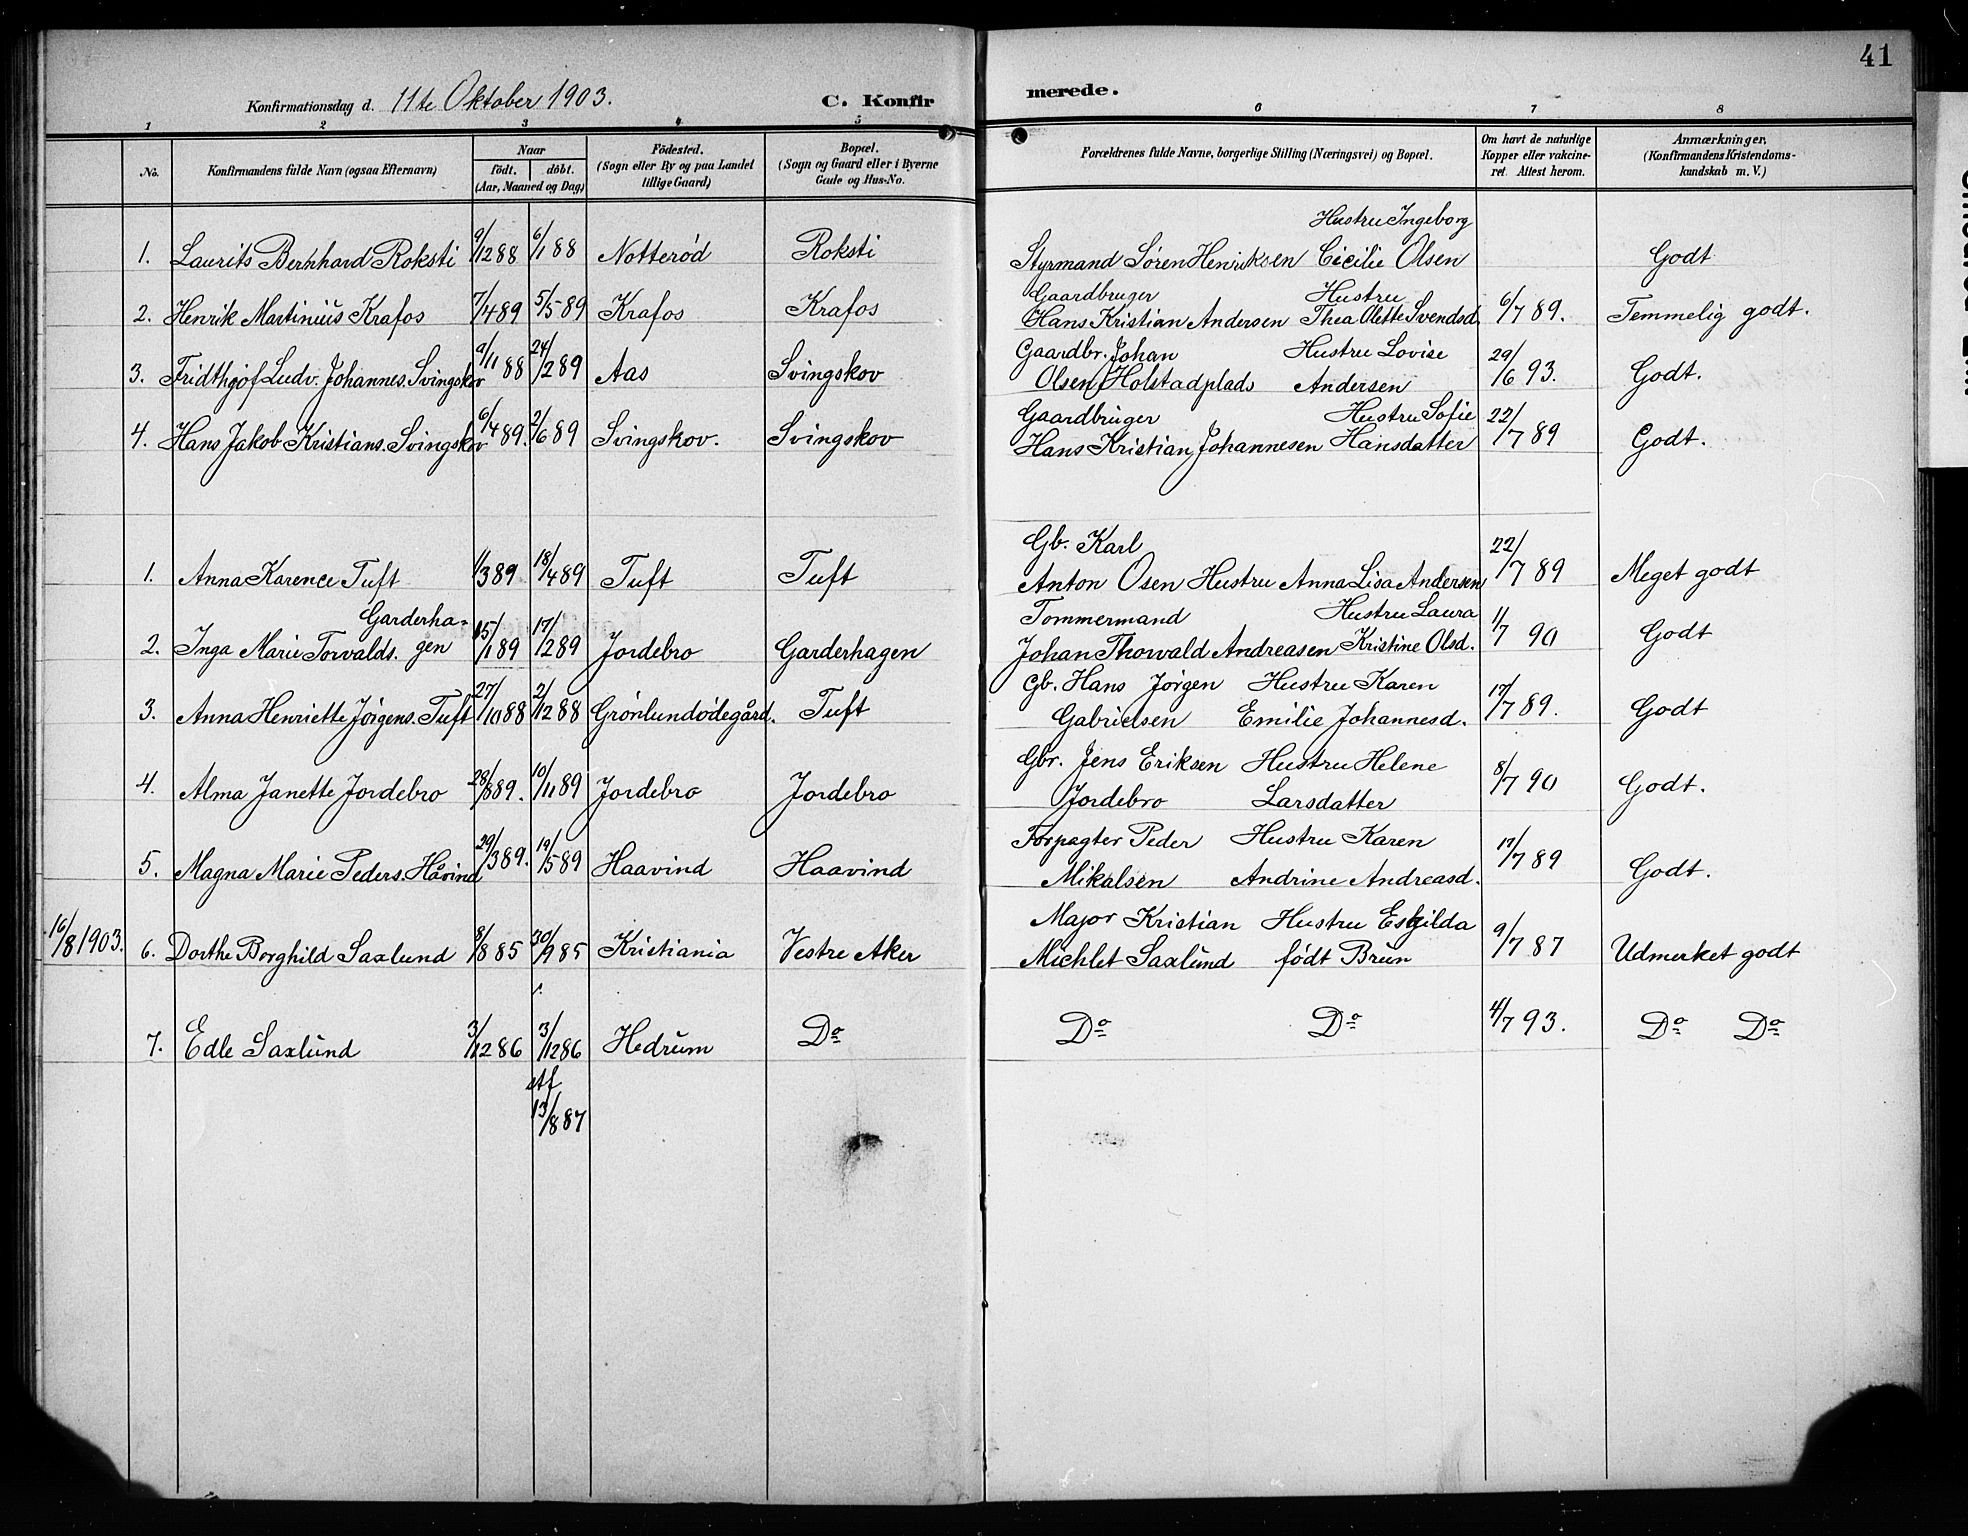 41
Konfirmationsdag d. 11te Oktober 1903. C. Konfir merede.
1 2 3 4 5 6 7 8
No. Konfirmandens fulde Navn (ogsaa Efternavn) Naar født. døbt. (Aar, Maaned og Dag) Födested. (Sogn eller By og paa Landet tillige Gaard) Bopæl. (Sogn og Gaard eller i Byerne Gade og Hus-No.
Forældrenes fulde Navne, borgerlige Stilling (Næringsvei) og Bopæl. Om havt de naturlige Kopper eller vakcineret. Attest herom. Anmærkninger. (Konfirmandens Kristendomskundskab m. V.)
Hustru Ingeborg
1. Laurits Bernhard Roksti 9/12 88 6/1 88 Notterød Roksti Styrmand Søren Henriksen Cecilie Olsen Godt
Gaardbruger Hustru
2. Henrik Martinius Krafos 7/4 89 5/5 89 Krafos Krafos Hans Kristian Andersen Thea Olette Svendsd. 6/7 89. Temmelig godt.
Gaardbr. Johan Hustru Lovise
3. Fridthjof Ludv. Johannes. Svingskov 9/11 88 24/2 89 Aas Svingskov Olsen Holstadplads Andersen 29/6 93. Godt.
Gaardbruger Hustru Sofie
4. Hans Jakob Kristians. Svingskov 6/4 89. 2/6 89 Svingskov. Svingskov Hans Kristian Johannesen Hansdatter 22/7 89 Godt.
Gb. Karl
1. Anna Karence Tuft 1/3 89 18/4 89 Tuft Tuft Anton Osen Hustru Anna Lisa Andersen 22/7 89 Meget godt
Garderha- Tommermand Hustru Laura
2. Inga Marie Torvalds. gen 15/1 89 17/2 89 Jordebro Garderhagen Johan Thorvald Andreasen Kristine Olsd. 1/7 90 Godt
Gb. Hans Jørgen Hustru Karen
3. Anna Henriette Jørgens. Tuft 27/10 88 2/12 88 Grønlundødegård. Tuft Gabrielsen Emilie Johannesd. 17/7 89. Godt
Gbr. Jens Eriksen Hustru Helene
4. Alma Janette Jordebro 28/8 89. 10/11 89 Jordebro Jordebro Jordebro Larsdatter 8/7 90 Godt.
Forpagter Peder Hustru Karen
5. Magna Marie Peders. Håvind 29/3 89. 19/5 89 Haavind Haavind Mikalsen Andrine Andreasd. 17/7 89 Godt.
Major Kristian Hustru Eskilda
16/8 1903. 6. Dorthe Borghild Saxlund 8/8 85 20/9 85 Kristiania Vestre Aker Michlet Saxlund født Brun 9/7 87 Udmerket godt
7. Edle Saxlund 3/12 86 3/12 86 Hedrum Do Do Do 4/7 93. Do Do
stf
13/8 87